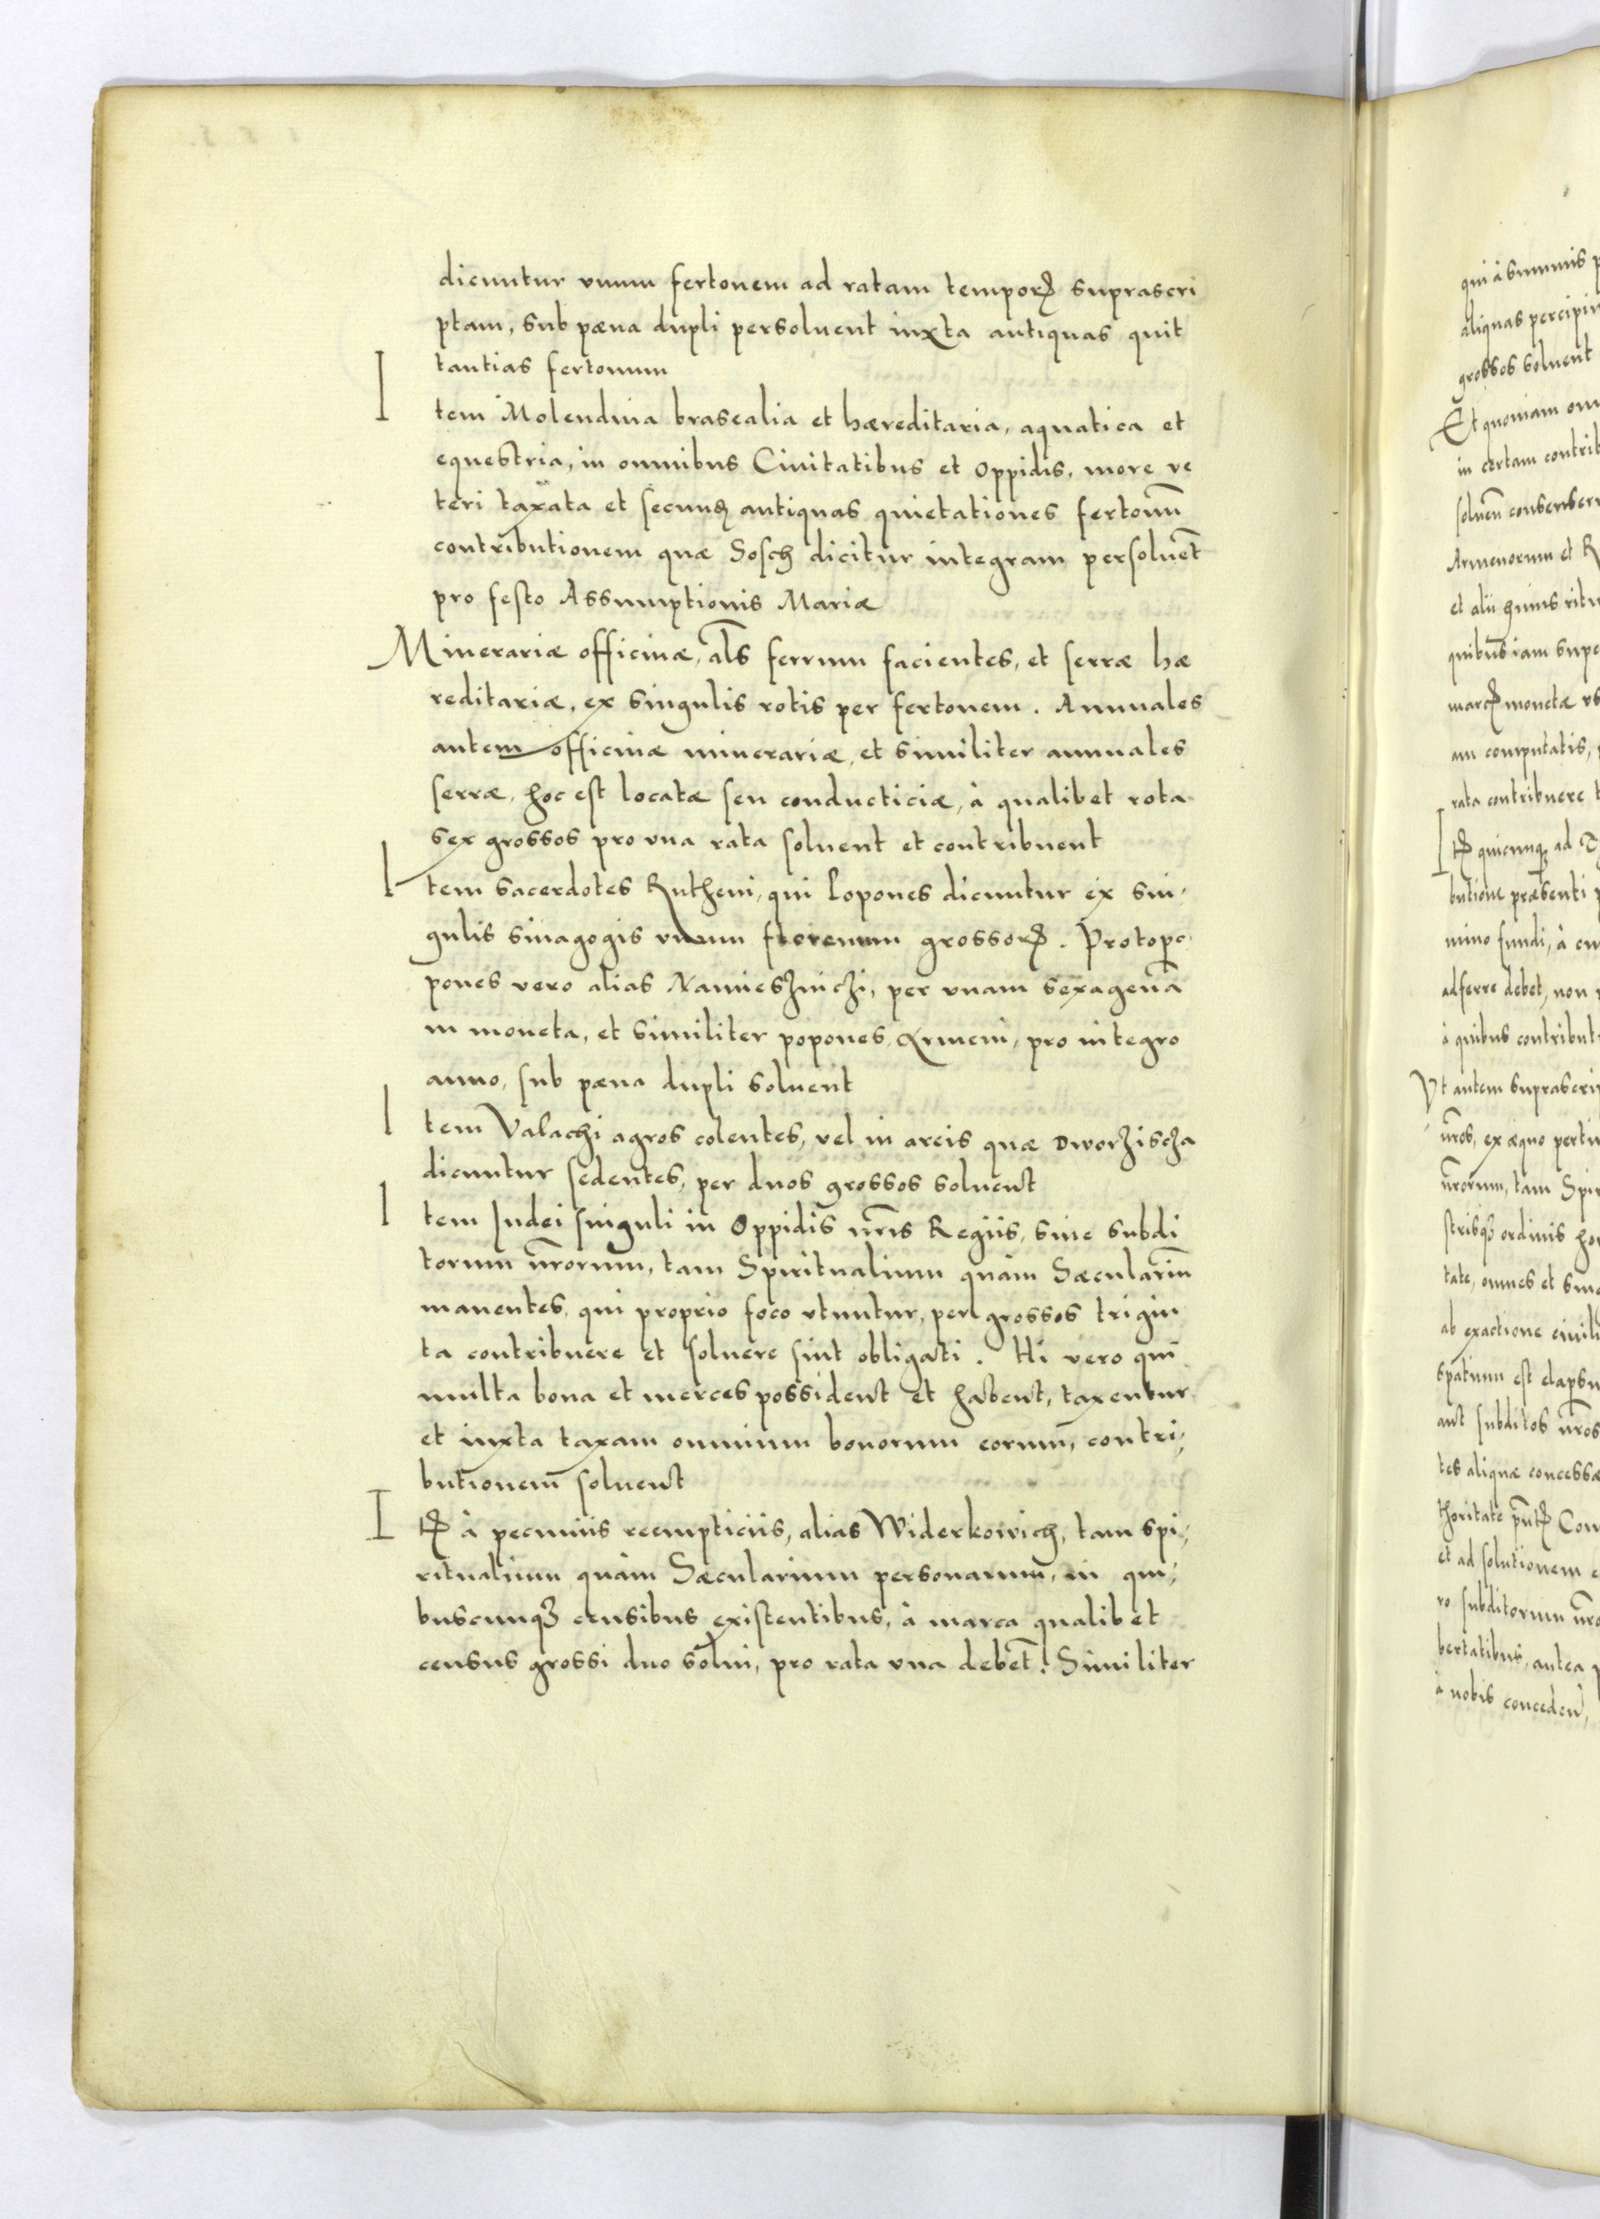 dicuntur vnum fertonem ad ratam tempoꝝ suprascri
ptam, sub pæna dupli persoluent iuxta antiquas quit
tantias fertonum
Item Molendina brasealia et hæreditaria, aquatica et
equestria, in omnibus Ciuitatibus et oppidis, more ve
teri taxata et secunꝫ antiquas quietationes fertonū
contributionem quæ Sosch dicitur integram persoluēt
pro festo Assumptionis Mariæ
Minerariæ officinæ, al̄s ferrum facientes, et serræ hæ
reditariæ, ex singulis rotis per fertonem. Annuales
autem officinæ minerariæ, et similiter annuales
serræ, hoc est locatæ seu conducticiæ, à qualibet rota
sex grossos pro vna rata soluent et contribuent
Item sacerdotes Rutheni, qui Popones dicuntur ex sin,
gulis sinagogis vnum florenum grossoꝝ. Protopo
pones vero alias Namieszniczi, per vnam sexagenā
in moneta, et similiter popones Armeni, pro integro
anno, sub pæna dupli soluent
Item Valachi agros colentes, vel in areis quæ Dworzischa
dicuntur sedentes, per duos grossos soluent
Item Iudei singuli in Oppidis nr̄is Regiis, siue subdi
torum nr̄orum, tam Spiritualium quàm Sæculariū
manentes, qui proprio foco vtuntur, per grossos trigin
ta contribuere et soluere sint obligati. Hi vero qui
multa bona et merces possident et habent, taxentur
et iuxta taxam omnium bonorum eorum, contri,
butionem soluent
Itꝫ à pecuniis reempticiis, alias Widerkowich, tam spi,
ritualium quàm Sæcularium personarum, in qui,
buscunqꝫ censibus existentibus, à marca qualibet
census grossi duo solui, pro rata vna debēt. Similiter
qui à summis
aliquas percipiu
grossos soluent
Et quoniam om
in certam contrib
Armenorum et R
et alii huius ritu
quibus iam supe
marcꝫ monetæ
computatis,
rata contribuere
Itꝫ quicunqꝫ ad
butione præsenti
mino fundi, à
adferre debet, non
à quibus contribut
Vt autem suprascri
nr̄os, ex æquo
nr̄orum, tam Spir
strisqꝫ ordinis
tate, omnes et
ab exactione ciuil
spatium est elapsu
aut subditos nr̄os
tes aliquæ concessæ
thoritate
et ad solutionem
ro subditorum
bertatibus, antea
à nobis conceden,